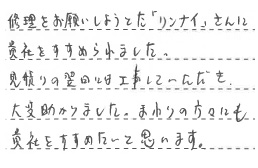 修理をお願いしようとた「リンナイ」さんに
貴社をすすめられました。
見積りの翌日は工事していただき
大変助かりました。まわりの方々にも
貴社をすすめたいて思います。